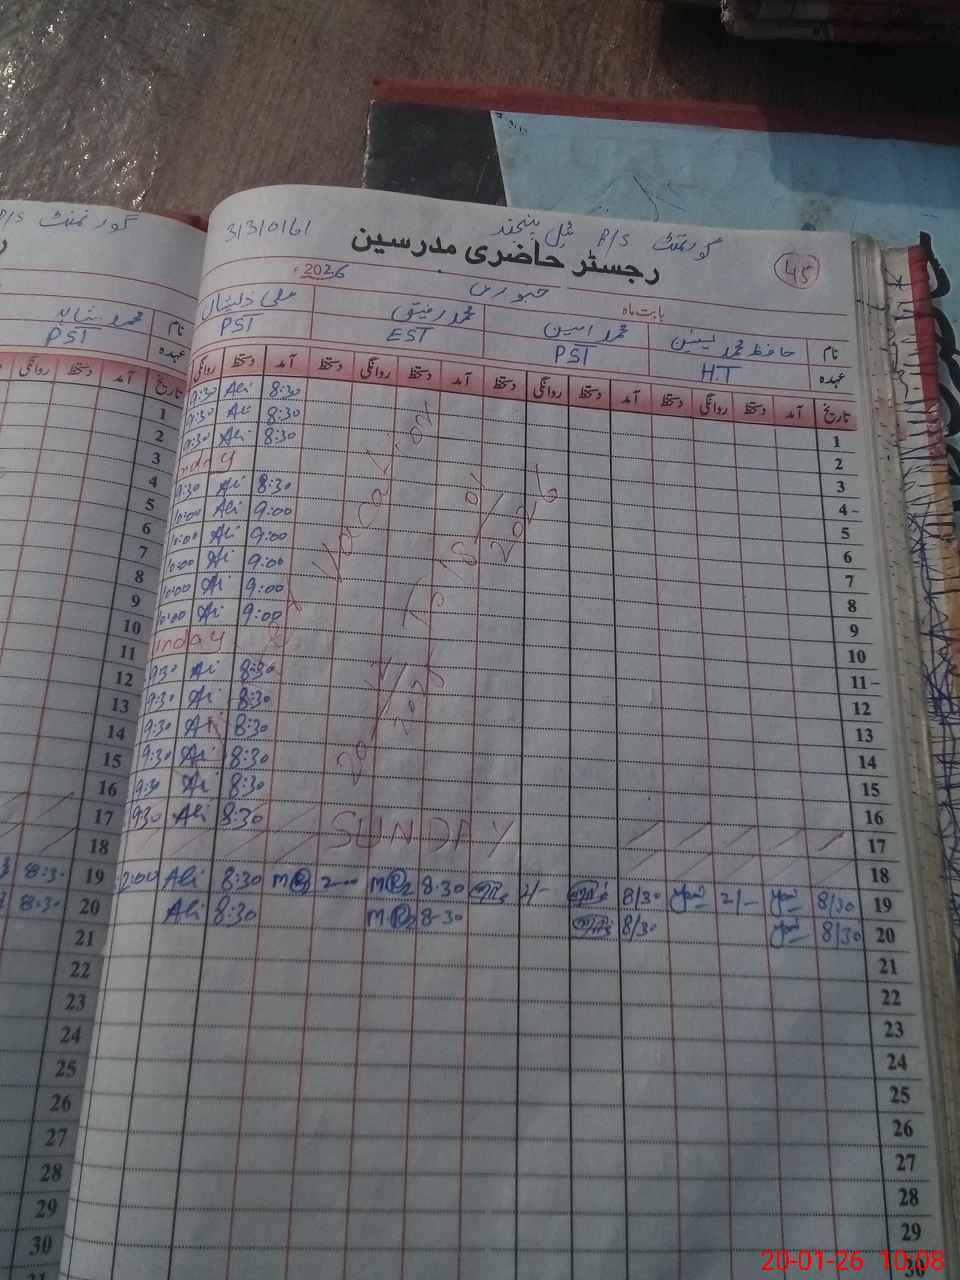 گورنمنٹ P/S
31310161
گورنمنٹ P/S
45
رجسٹر حاضری مدرسین
بابت ماہ جنوری 2026ء
نام حافظ محمد یٰسین محمد امین محمد رفیق
عہدہ H.T PST EST PST
تاریخ آمد دستخط روانگی دستخط آمد دستخط روانگی دستخط آمد دستخط روانگی دستخط آمد دستخط روانگی
نام
عہدہ PST
تاریخ آمد دستخط روانگی
1 8:30 Ali 9:30
2 8:30 Ali 9:30
3 8:30 Ali 9:30
4 nday
5 8:30 Ali 9:30
6 9:00 Ali 10:00
7 9:00 Ali 10:00
8 9:00 Ali 10:00
9 9:00 Ali 10:00
10 9:00 Ali 10:00
11 unday
12 8:30 Ali 9:30
13 8:30 Ali 9:30
14 8:30 Ali 9:30
15 8:30 Ali 9:30
16 8:30 Ali 9:30
17 8:30 Ali 9:30
Vacation
20/12/2025 To 18/01/2026
18 SUNDAY
19 8/30 2/- 8/30 2/- 8:30 2:00 8:30 Ali 2:00
20 8/30 8/30 8:30 8:30 Ali
21
22
23
24
25
26
27
28
29
30
1
2
3
4
5
6
7
8
9
10
11
12
13
14
15
16
17
18
19 8:30
20 8:30
21
22
23
24
25
26
27
28
29
30
31
20-01-26 10:08